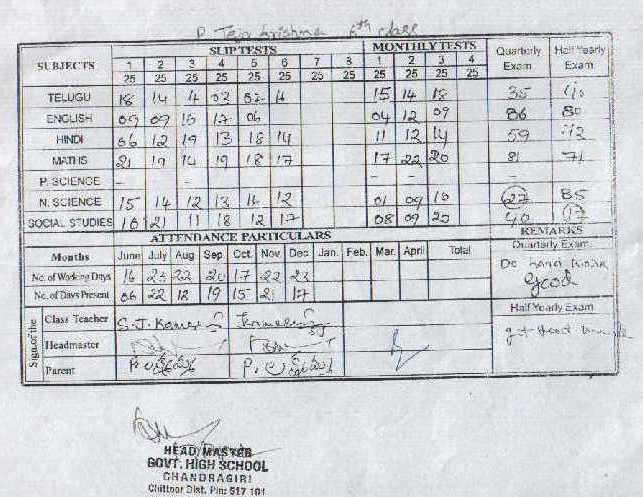 P. Teja krishna 6th class
SUBJECTS SLIP TESTS MONTHLY TESTS Quarterly Exam Half Yearly Exam
1 2 3 4 5 6 7 8 1 2 3 4
25 25 25 25 25 25 25 25 25 25 25 25
TELUGU 18 14 4 03 02 15 14 18 35
ENGLISH 09 09 17 06 04 12 09 86 80
HINDI 06 12 19 13 18 14 11 12 14 59
MATHS 21 19 14 19 18 17 17 22 20 81 71
P. SCIENCE - - -
N. SCIENCE 15 14 12 13 12 01 09 27 85
SOCIAL STUDIES 21 11 18 12 17 08 09 20 40 17
ATTENDANCE PARTICULARS REMARKS
Months June July Aug Sep Oct. Nov Dec Jan. Feb. Mar. April Total Quarterly Exam
No. of Working Days 16 23 22 20 17 22 23
No. of Days Present 06 22 18 19 15 21 17 Good
Half Yearly Exam
Sign.of the Class Teacher
Headmaster
Parent
HEAD MASTER
GOVT. HIGH SCHOOL
CHANDRAGIRI
Chittoor Dist. Pin: 517 101